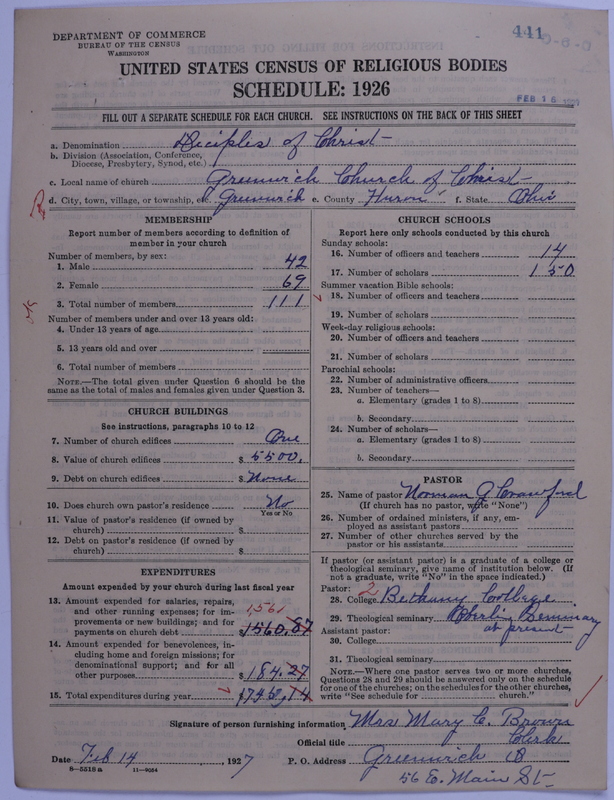 DEPARTMENT OF COMMERCE
BUREAU OF THE CENSUS
WASHINGTON
441
UNITED STATES CENSUS OF RELIGIOUS BODIES
SCHEDULE: 1926
FEB 18 1927
FILL OUT A SEPARATE SCHEDULE FOR EACH CHURCH. SEE INSTRUCTIONS ON THE BACK OF THIS SHEET
a. Denomination Deciples of Christ
b. Division (Association, Conference, Diocese, Presbytery, Synod, etc.)
c. Local name of church Greenwich Church of Christ
d. City, town, village, or township, etc. Greenwich e. County Huron f. State Ohio
MEMBERSHIP
Report number of members according to definition of
member in your church
Number of members, by sex:
1. Male 42
2. Female 69
3. Total number of members 111
Number of members under and over 13 years old:
4. Under 13 years of age
5. 13 years old and over
6. Total number of members
NOTE.—The total given under Question 6 should be the
same as the total of males and females given under Question 3.
CHURCH BUILDINGS
See instructions, paragraphs 10 to 12
7. Number of church edifices One
8. Value of church edifices $ 5500.
9. Debt on church edifices $ None
10. Does church own pastor's residence No
Yes or No
11. Value of pastor's residence (if owned by
church) $
12. Debt on pastor's residence (if owned by
church) $
EXPENDITURES
Amount expended by your church during last fiscal year
13. Amount expended for salaries, repairs,
and other running expenses; for im-
provements or new buildings; and for 1561
payments on church debt $ 1560.87
14. Amount expended for benevolences, in-
cluding home and foreign missions; for
denominational support; and for all
other purposes $ 184.27
15. Total expenditures during year $ 1745.14
CHURCH SCHOOLS
Report here only schools conducted by this church
Sunday schools:
16. Number of officers and teachers 14
17. Number of scholars 150
Summer vacation Bible schools:
18. Number of officers and teachers
19. Number of scholars
Week-day religious schools:
20. Number of officers and teachers
21. Number of scholars
Parochial schools:
22. Number of administrative officers
23. Number of teachers—
a. Elementary (grades 1 to 8)
b. Secondary
24. Number of scholars—
a. Elementary (grades 1 to 8)
b. Secondary
PASTOR
25. Name of pastor Norman G Crawford
(If church has no pastor, write "None")
26. Number of ordained ministers, if any, em-
ployed as assistant pastors
27. Number of other churches served by the
pastor or his assistants
If pastor (or assistant pastor) is a graduate of a college or
theological seminary, give name of institution below. (If
not a graduate, write "No" in the space indicated.)
Pastor: 2
28. College Bethany College
29. Theological seminary Oberlin Seminary
Assistant pastor: at present
30. College
31. Theological seminary
NOTE.—Where one pastor serves two or more churches,
Questions 28 and 29 should be answered only on the schedule
for one of the churches; on the schedules for the other churches,
write "See schedule for church."
Signature of person furnishing information Mrs Mary C. Brown
Official title Clerk
Date Feb 14, 1927 P. O. Address Greenwich O
8—5518a 11—9054
56 E. Main St